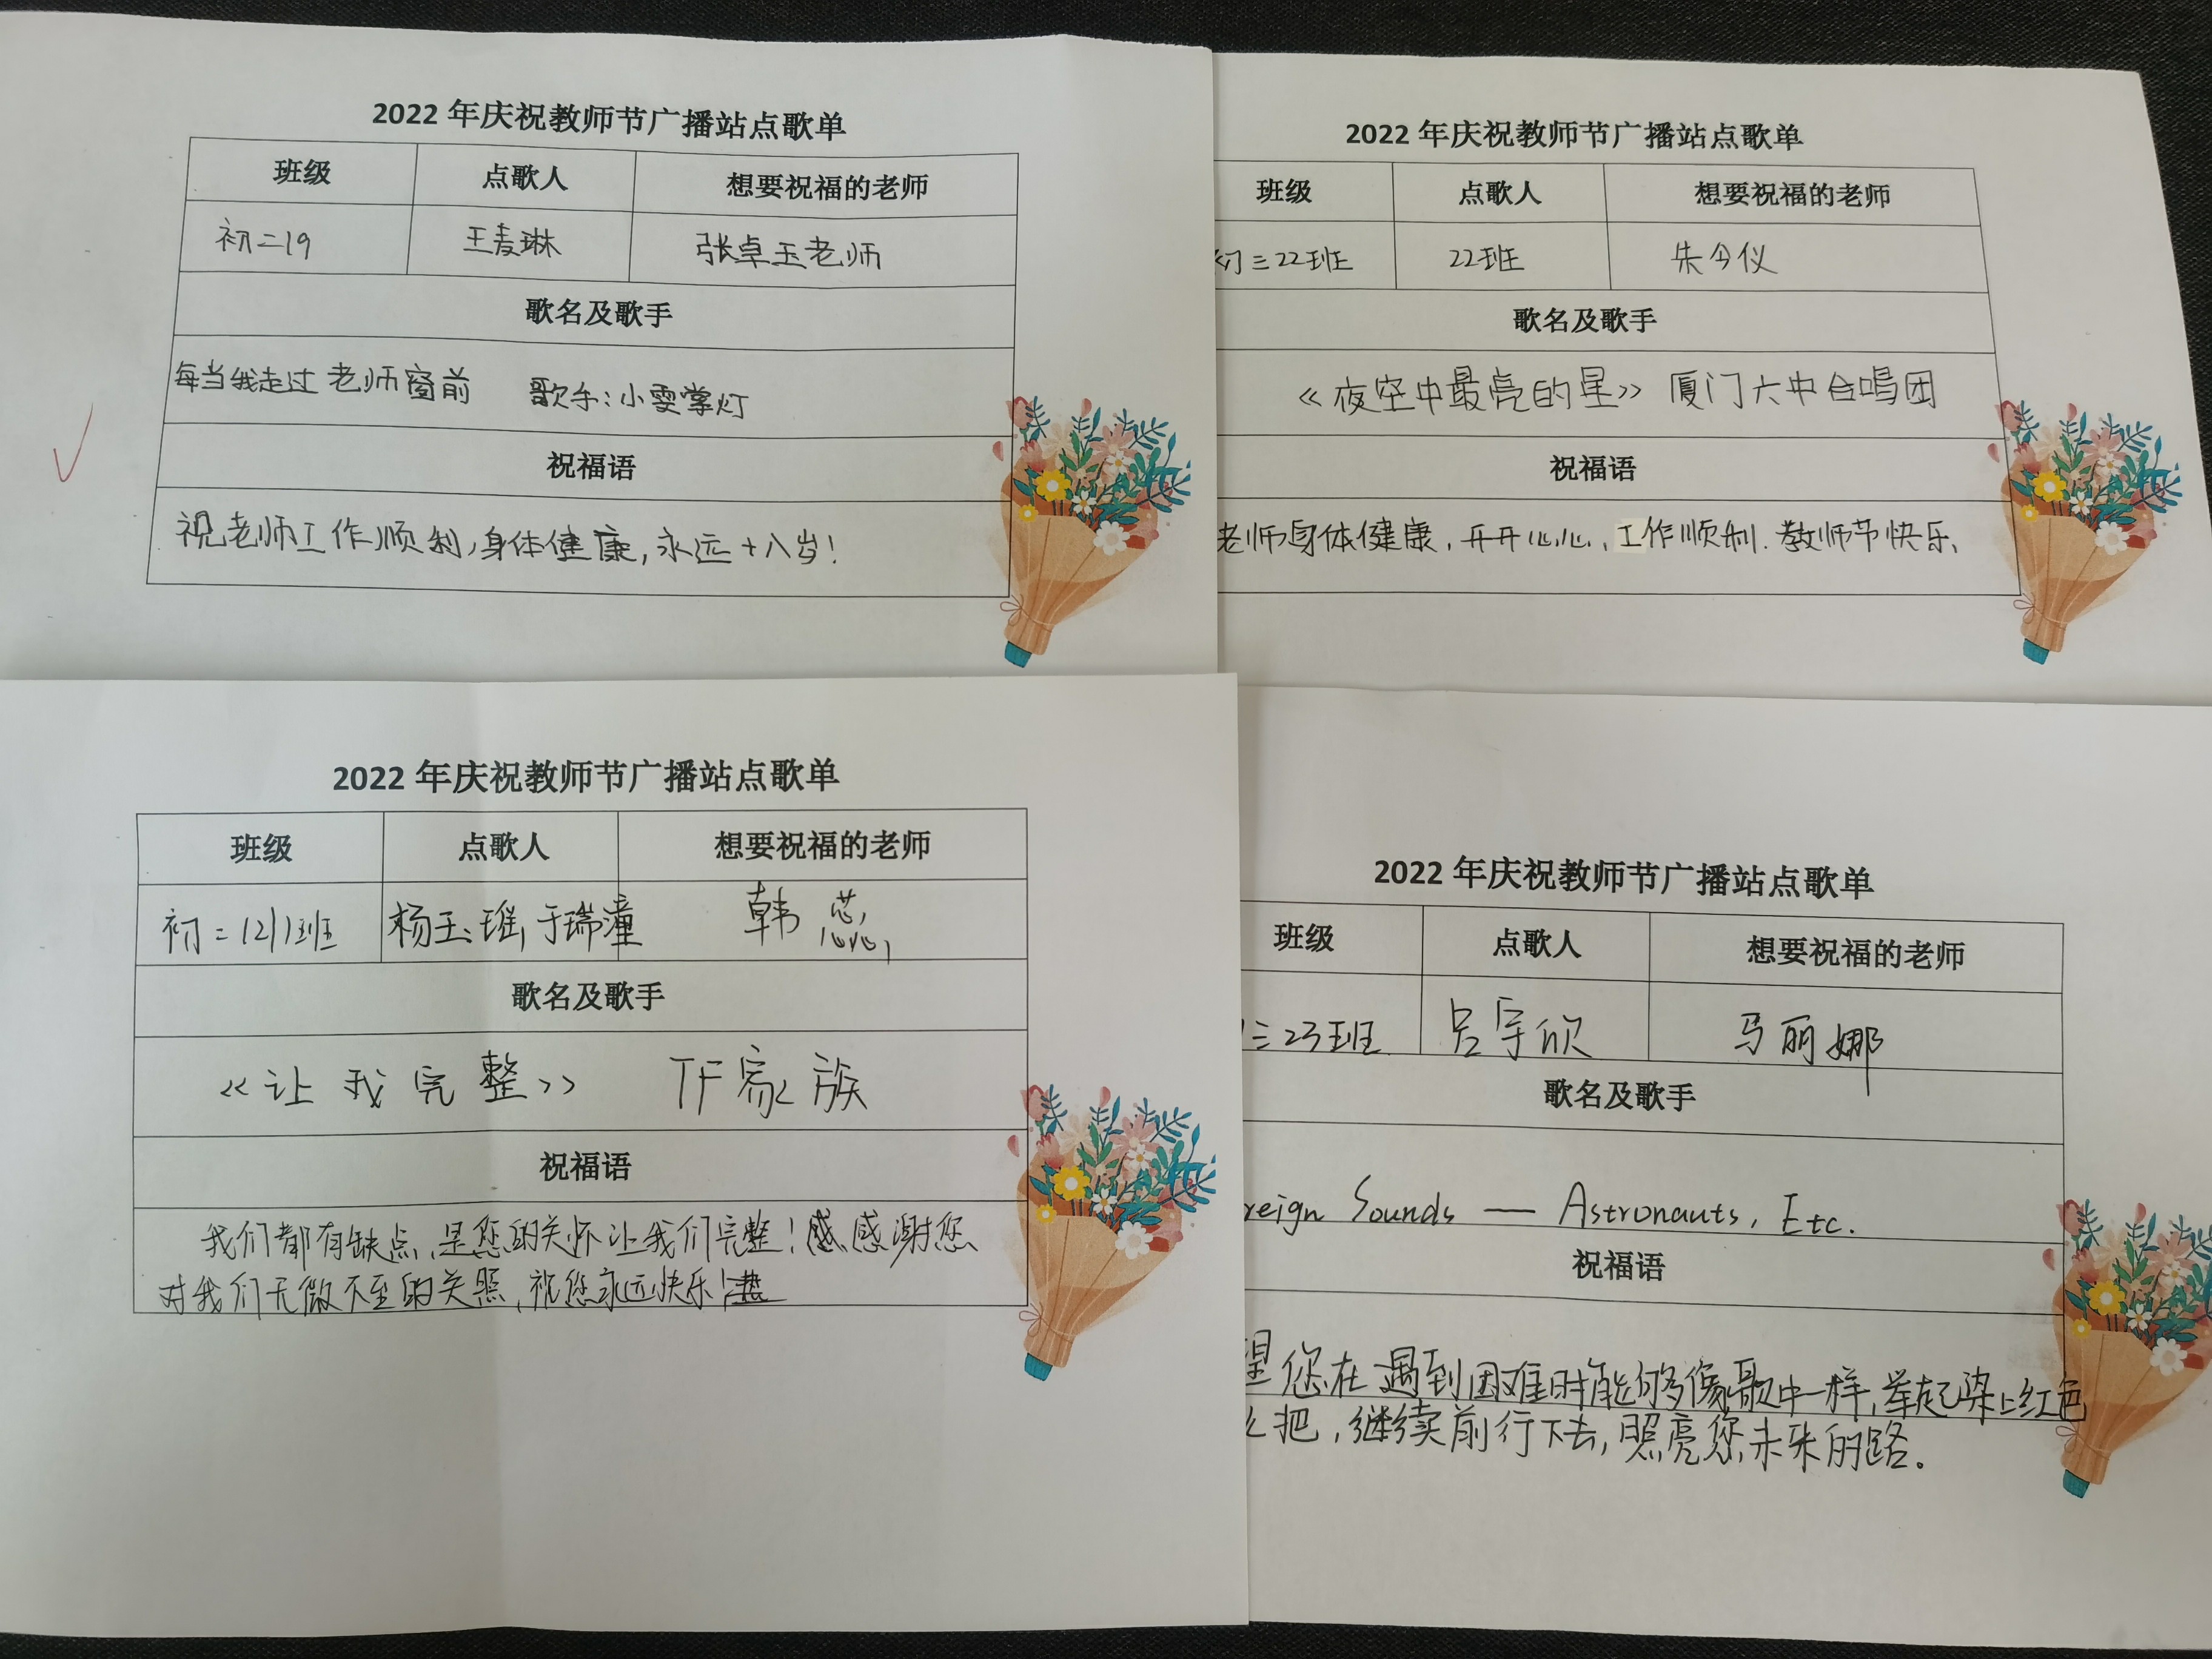 2022 年庆祝教师节广播站点歌单
班级 点歌人 想要祝福的老师
初二19 王麦琳 张卓玉老师
歌名及歌手
每当我走过老师窗前 歌手:小雯掌灯
祝福语
祝老师工作顺利,身体健康,永远十八岁!
2022 年庆祝教师节广播站点歌单
班级 点歌人 想要祝福的老师
初三22班 22班 朱今仪
歌名及歌手
《夜空中最亮的星》 厦门六中合唱团
祝福语
老师身体健康,开开心心,工作顺利.教师节快乐、
2022 年庆祝教师节广播站点歌单
班级 点歌人 想要祝福的老师
初二 班 杨玉瑶,于瑞潼 韩
歌名及歌手
《让我完整》 TF家族
祝福语
我们都有缺点,是您的关怀让我们完整!感谢您
对我们无微不至的关照,祝您永远快乐!
2022 年庆祝教师节广播站点歌单
班级 点歌人 想要祝福的老师
三23班 吕宇欣 马丽娜
歌名及歌手
reign Sounds — Astronauts, Etc.
祝福语
望您在遇到困难时能够像歌中一样,举起染上红色
把,继续前行下去,照亮您未来的路。